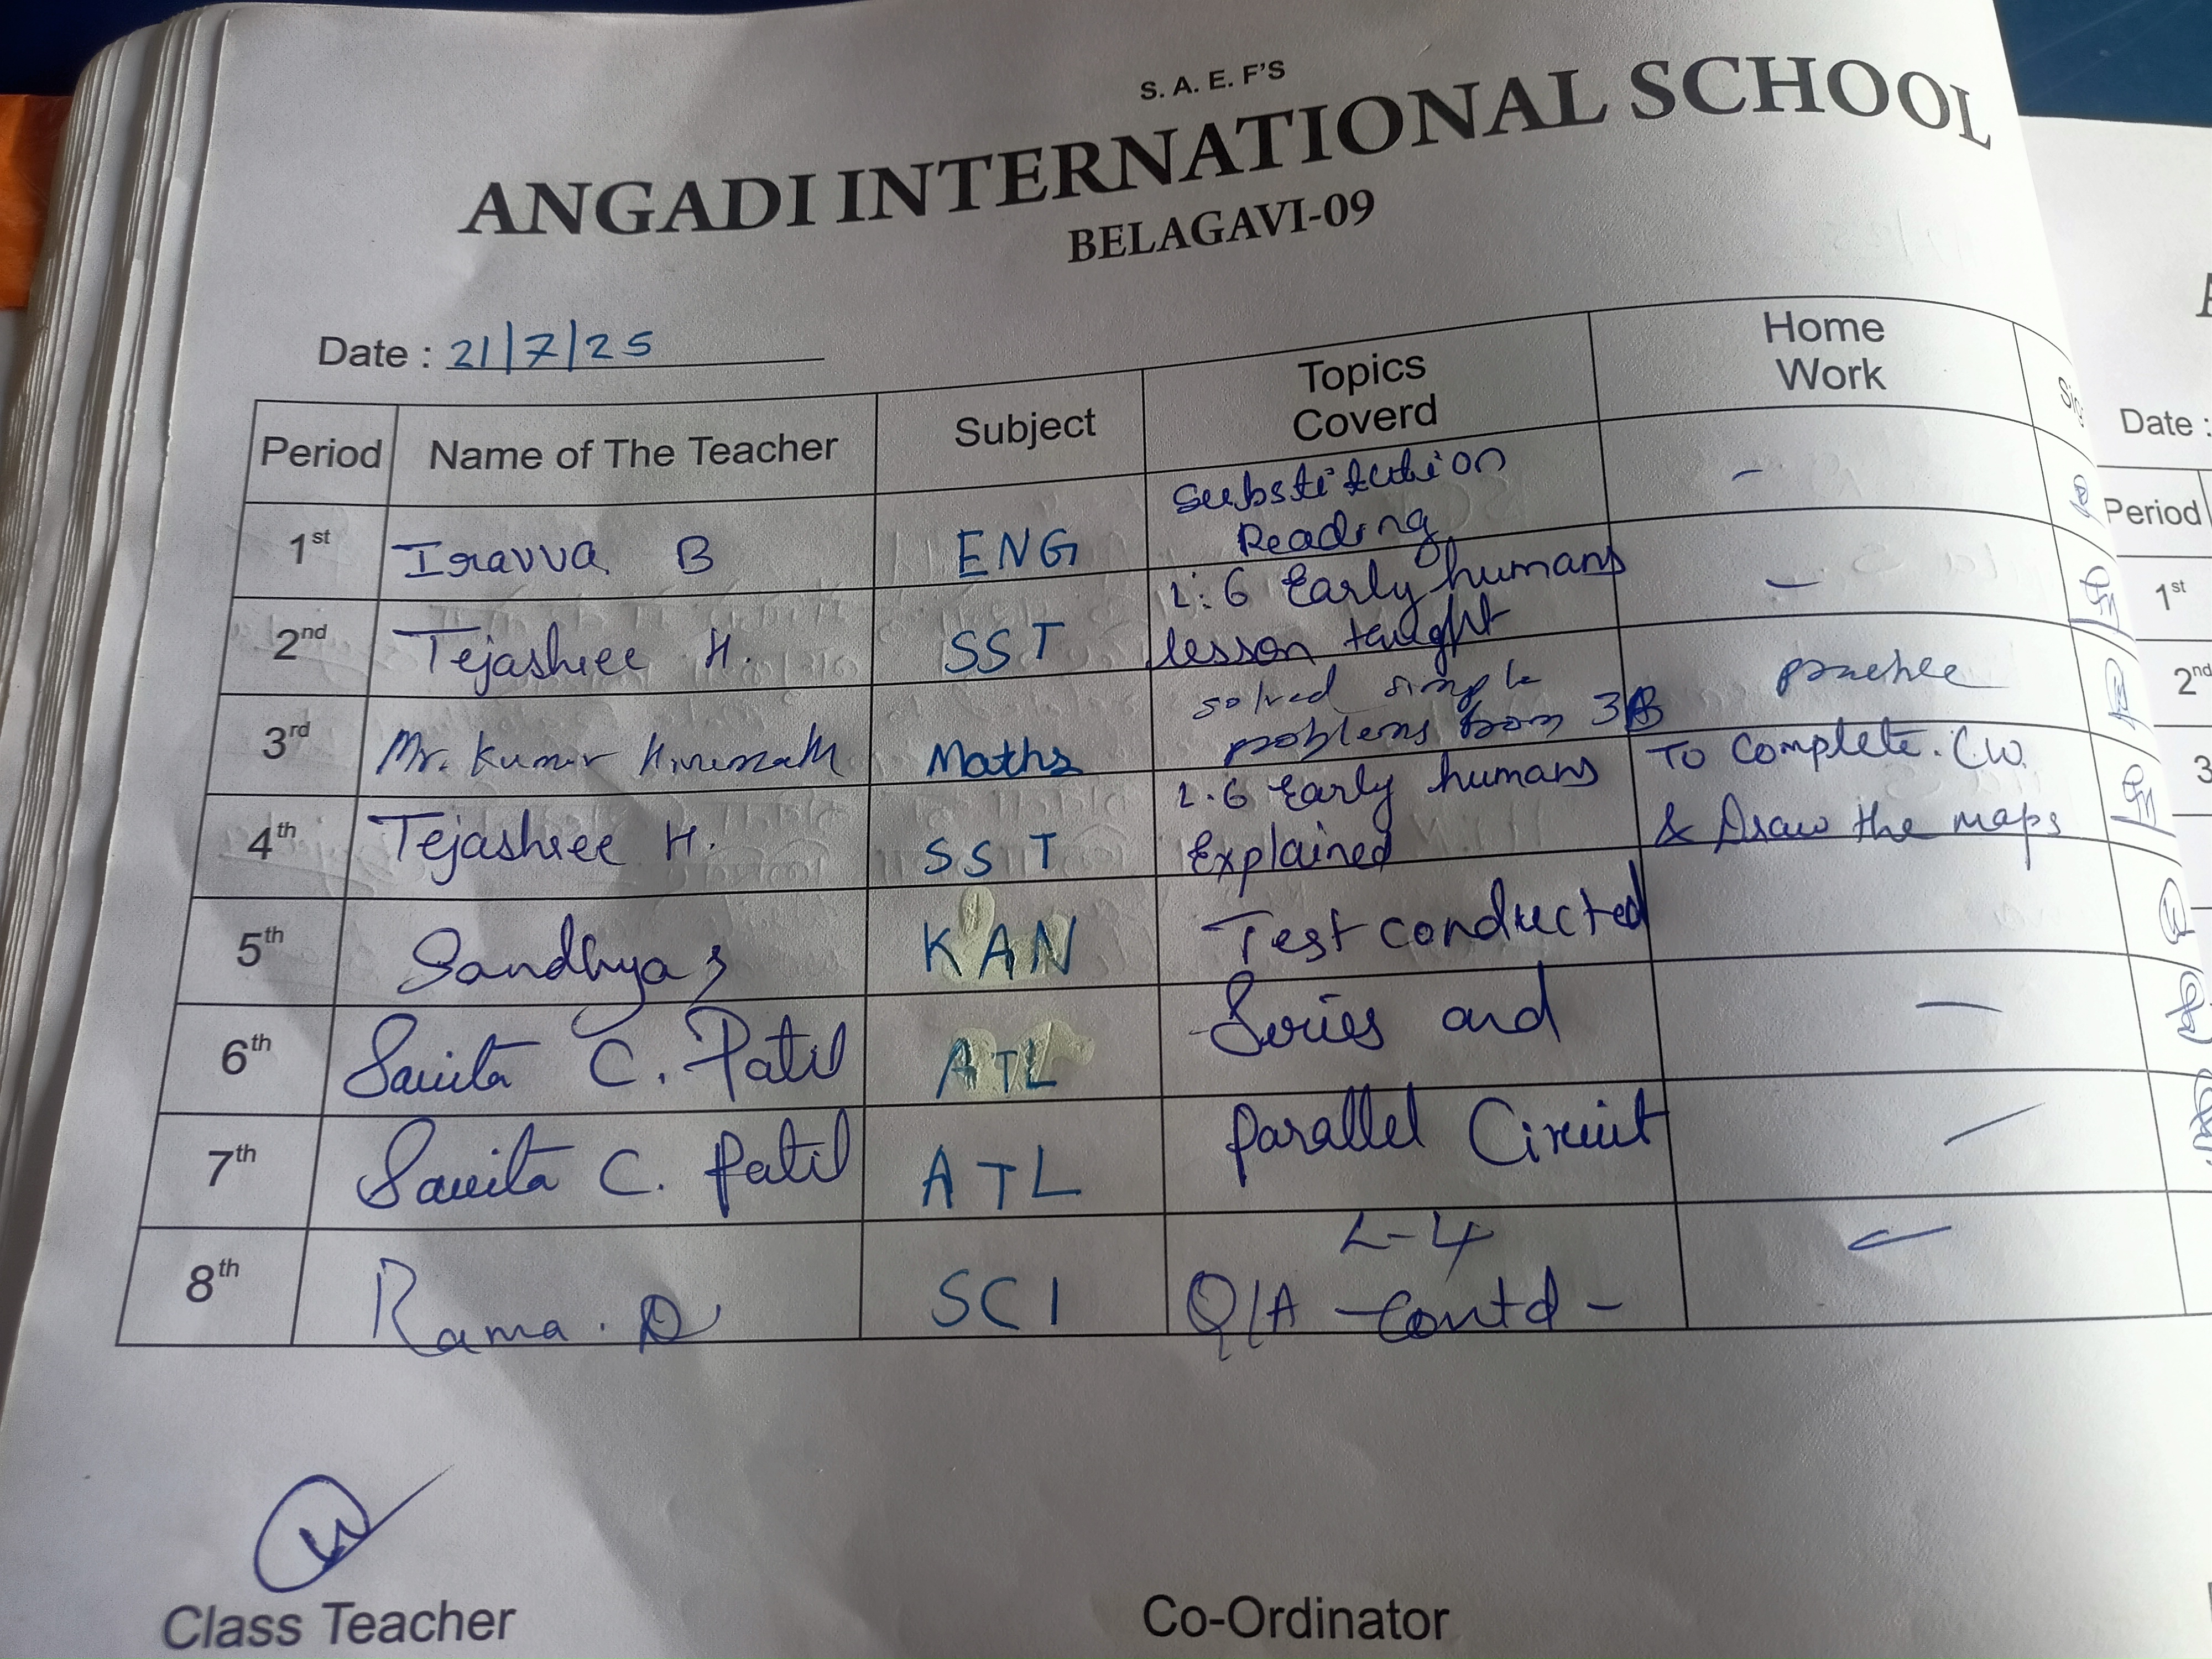 S. A. E. F'S
ANGADI INTERNATIONAL SCHOOL
BELAGAVI-09
Date : 21/7/25
Period Name of The Teacher Subject Topics Coverd Home Work
1st Iravva B ENG Substitution Reading -
2nd Tejashree H. SST L:6 Early humans lesson taught -
3rd Mr. Kumar Hiremath Maths solved simple problems from 3B practice
4th Tejashree H. SST L.6 Early humans Explained To Complete. C.W. & Draw the maps
5th Sandhya S KAN Test conducted
6th Savita C. Patil ATL Series and -
7th Savita C. Patil ATL parallel Circuit -
8th Rama . D SCI L-4 Q/A - Contd - -
Class Teacher Co-Ordinator
Date :
Period
1st
2nd
3